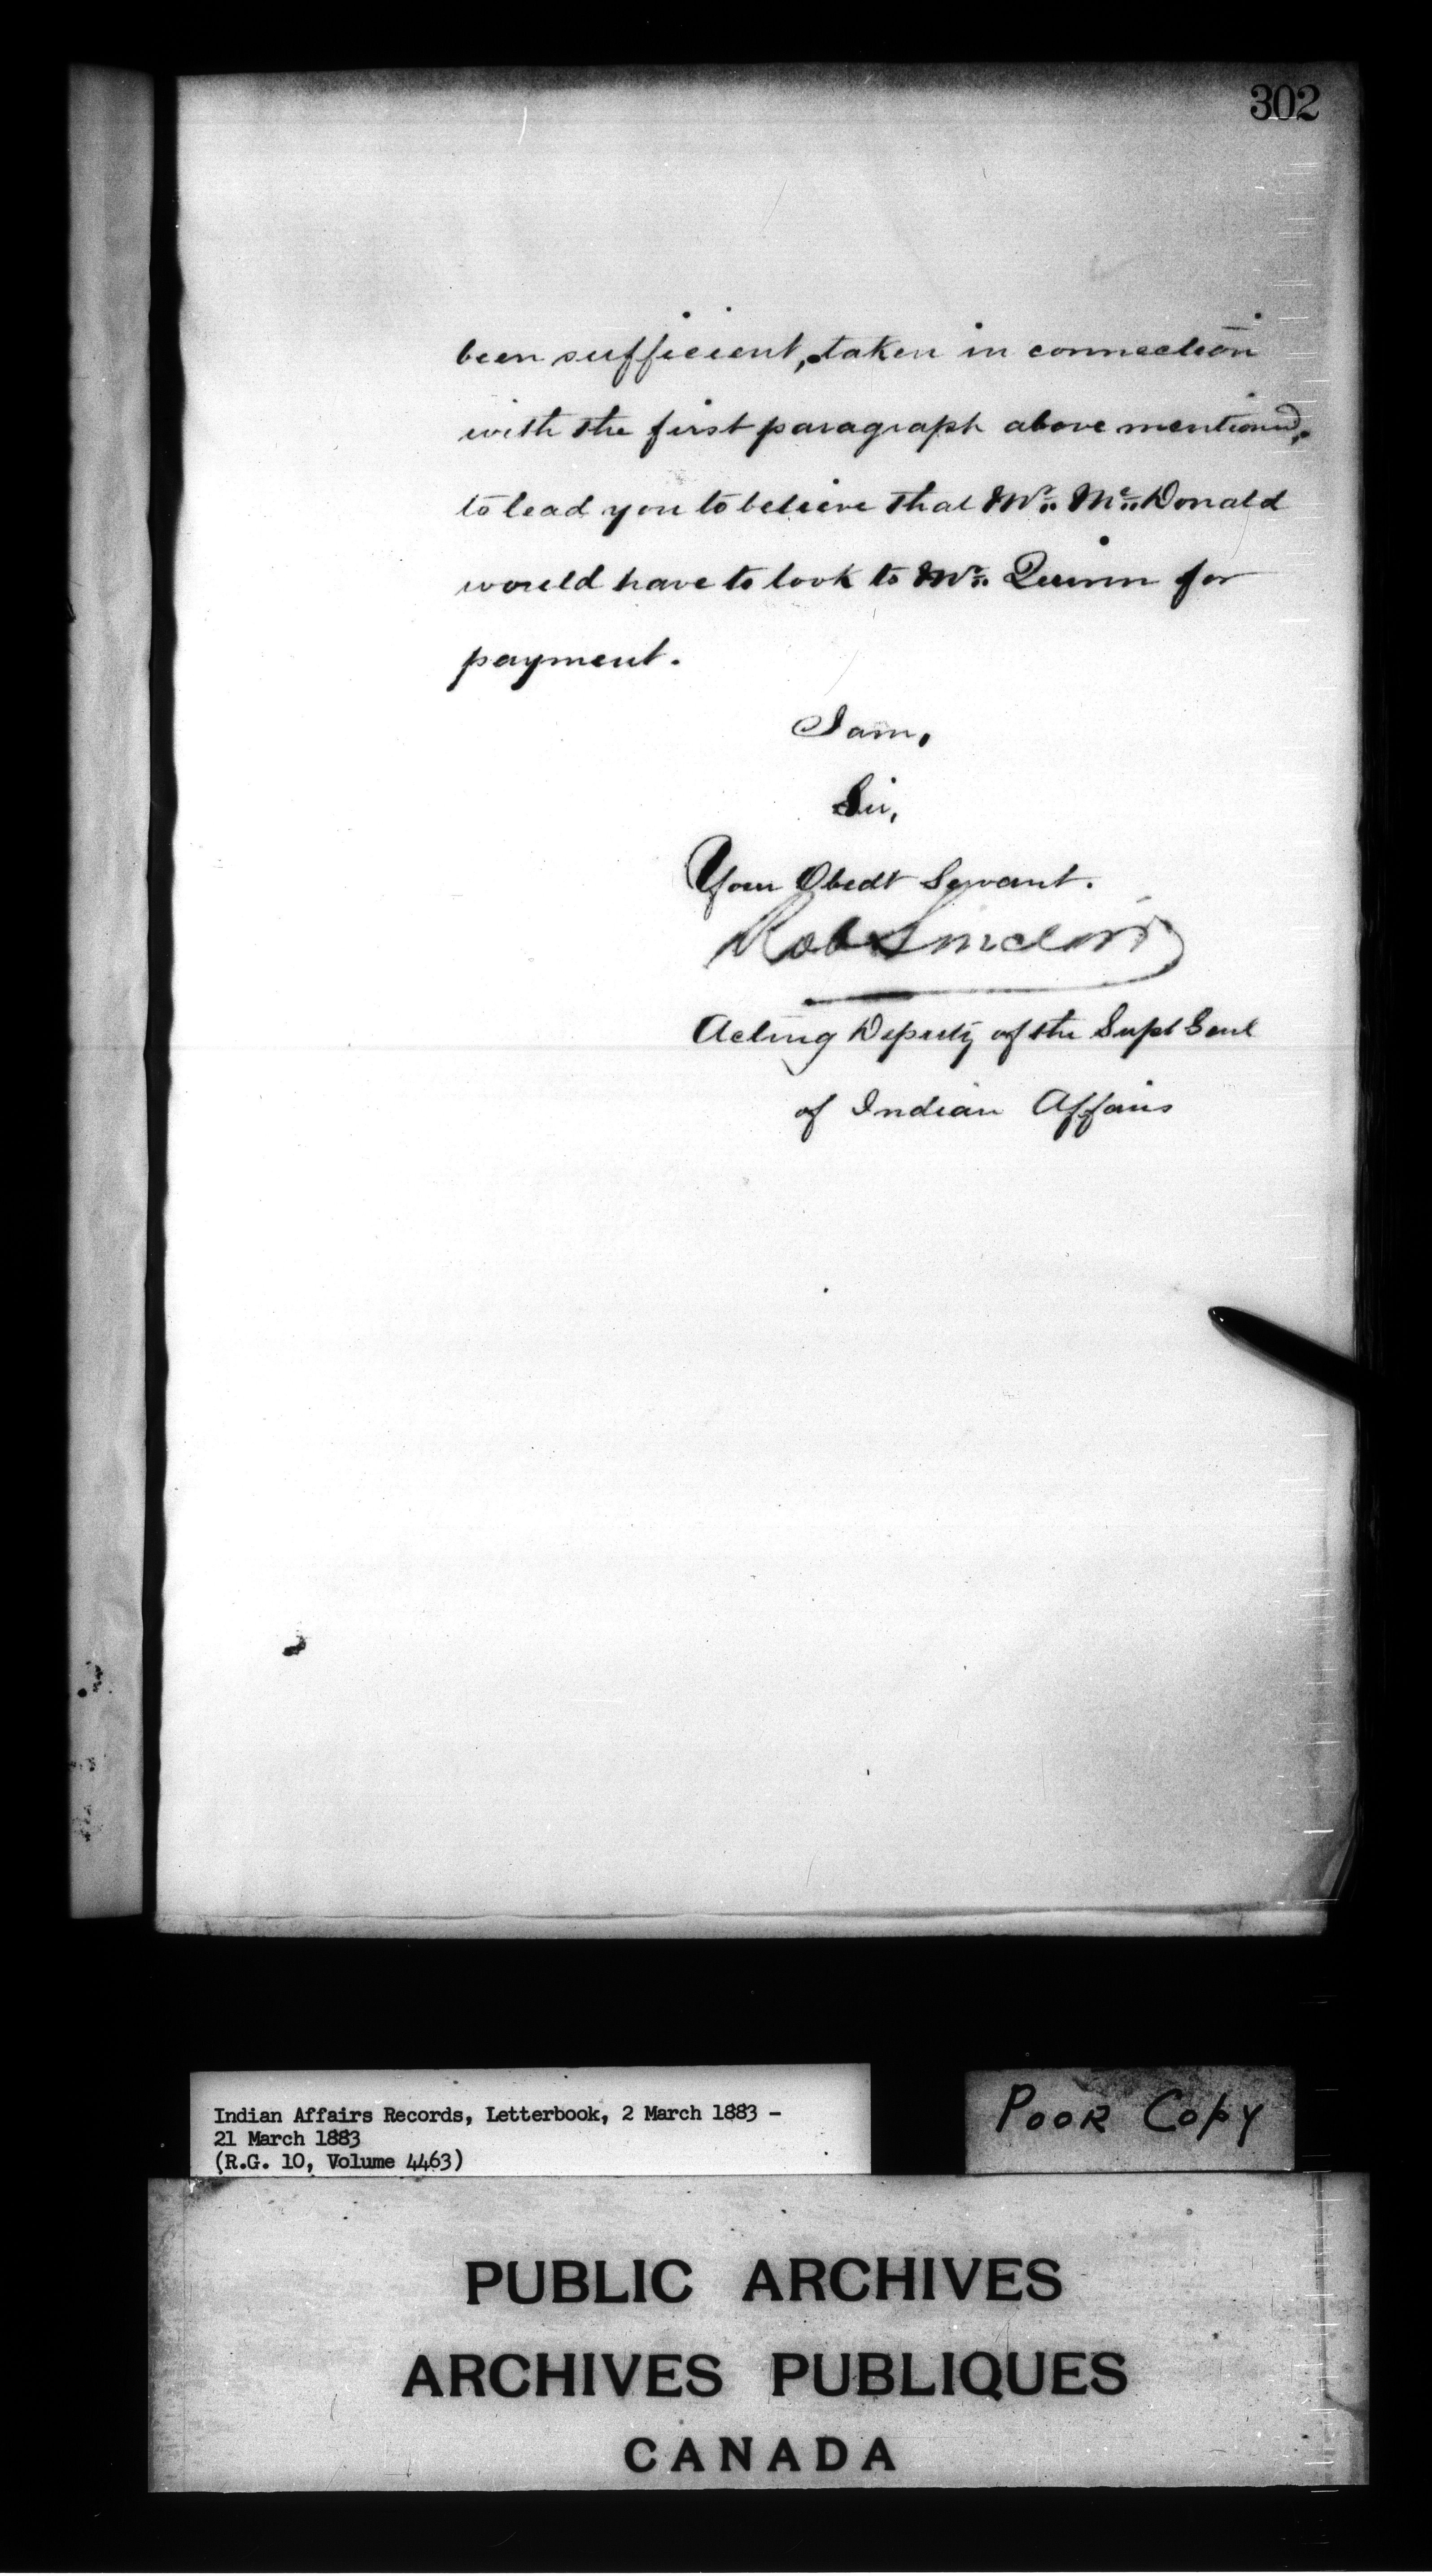 302
been sufficient, taken in connection
with the first paragraph above mentioned,
to lead you to believe that Mr. Mc.Donald
would have to look to Mr. Quinn for
payment.
I am,
Sir,
Your Obedt Servant.
Robt Sinclair
Acting Deputy of the Supt Genl
of Indian Affairs
Indian Affairs Records, Letterbook, 2 March 1883 -
21 March 1883
(R.G. 10, Volume 4463)
Poor Copy
PUBLIC ARCHIVES
ARCHIVES PUBLIQUES
CANADA